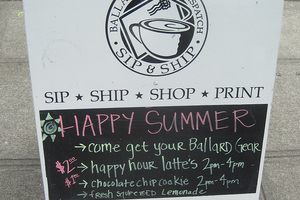 BALLA SPATCH
SIP & SHIP
SIP ★ SHIP ★ SHOP ★ PRINT
HAPPY SUMMER
→ come get your BALLARD GEAR
→ happy hour latte's 2pm-4pm
→ chocolate chip cookie 2pm-4pm
→ FRESH SQUEEZED Lemonade